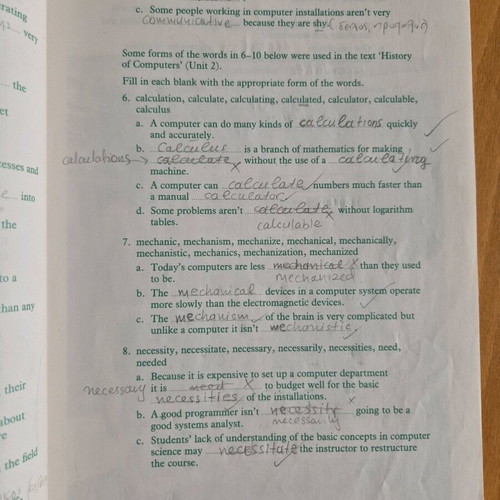 erating
very
c. Some people working in computer installations aren't very
communicative because they are shy.
the
Some forms of the words in 6–10 below were used in the text 'History
of Computers' (Unit 2).
Fill in each blank with the appropriate form of the words.
et
6. calculation, calculate, calculating, calculated, calculator, calculable,
calculus
a. A computer can do many kinds of calculations quickly
and accurately.
b. Calculus is a branch of mathematics for making
cesses and
calculations → calculate x without the use of a calculating
machine.
into
c. A computer can calculate numbers much faster than
a manual calculator
the
d. Some problems aren't calculate x without logarithm
tables. calculable
7. mechanic, mechanism, mechanize, mechanical, mechanically,
mechanistic, mechanics, mechanization, mechanized
to a
a. Today's computers are less mechanical x than they used
to be. mechanized
than any
b. The mechanical devices in a computer system operate
more slowly than the electromagnetic devices.
c. The mechanism of the brain is very complicated but
unlike a computer it isn't mechanistic.
8. necessity, necessitate, necessary, necessarily, necessities, need,
needed
their
a. Because it is expensive to set up a computer department
necessary it is need x to budget well for the basic
necessities of the installations.
about
b. A good programmer isn't necessity x going to be a
good systems analyst. necessarily
the field
c. Students' lack of understanding of the basic concepts in computer
science may necessitate the instructor to restructure
the course.